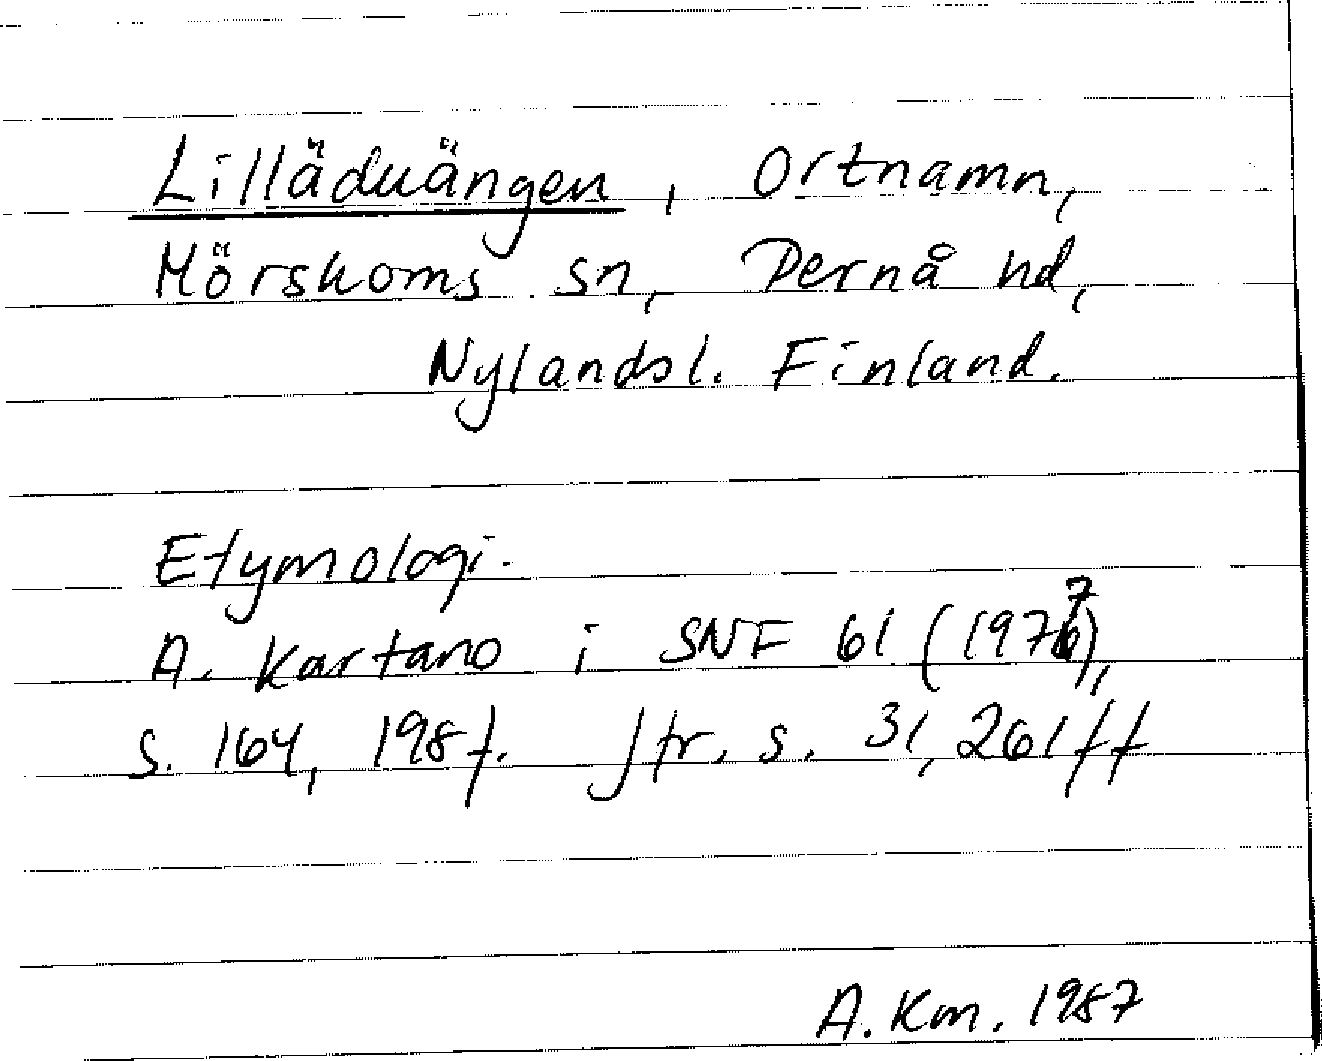 Lilläduängen, Ortnamn,
Mörskoms sn, Pernå hd,
Nylandsl. Finland.
Etymologi.
A. Kartano i SNF 61 (1977),
s. 164, 198f. Jfr. s. 31, 261ff
A. Km. 1987